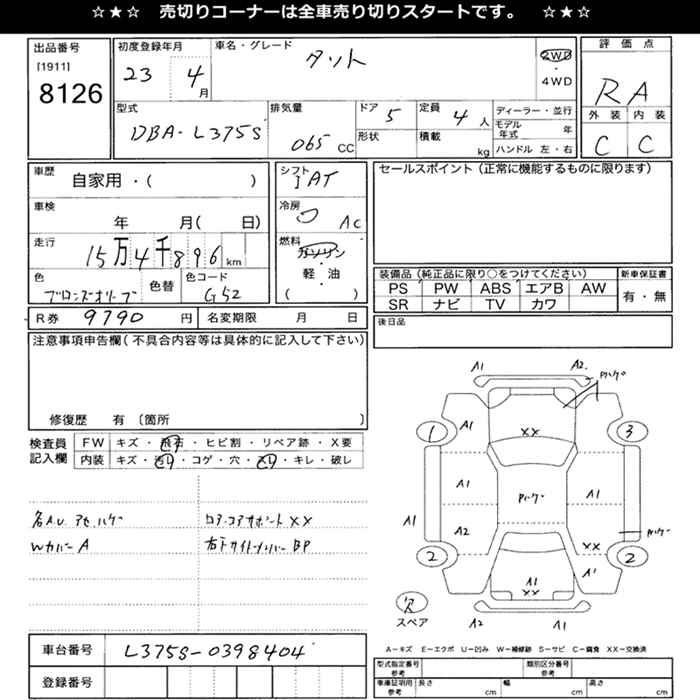 ☆★☆　売切りコーナーは全車売り切りスタートです。　☆★☆
出品番号
[1911]
8126
初度登録年月
23 4月
車名・グレード
タント
2WD
・
4WD
評価点
RA
外装 内装
C C
型式
DBA-L375S
排気量
065 CC
ドア 5
形状
定員 4 人
積載 kg
ディーラー・並行
モデル年式 年
ハンドル 左・右
車歴
自家用・(　　)
車検
年　月(　日)
走行
15万4千896km
色
ブロンズオリーブ
色替
色コード
G52
シフト
AT
冷房
AC
燃料
ガソリン
・
軽・油
(　　)
セールスポイント (正常に機能するものに限ります)
装備品 (純正品に限り○をつけてください)
PS PW ABS エアB AW
SR ナビ TV カワ
新車保証書
有・無
R券 9790 円
名変期限　月　日
後日品
注意事項申告欄(不具合内容等は具体的に記入して下さい)
修復歴　有　〔箇所　　〕
検査員
記入欄
FW キズ・飛石・ヒビ割・リペア跡・X要
内装 キズ・汚れ・コゲ・穴・スレ・キレ・破レ
Wカバー A
コアコアサポート XX
右下サイドメンバー BP
A1
A2
1
A1
XX
3
A1
A1
A1
A2
2
XX
A1
A1
XX
2
スペア
A2
A1
A−キズ　E−エクボ　U−凹み　W−補修跡　S−サビ　C−腐食　XX−交換済
車台番号
L375S-0398404
登録番号
型式指定番号
参考
類別区分番号
参考
車庫証明用
参考
長さ cm
幅 cm
高さ cm